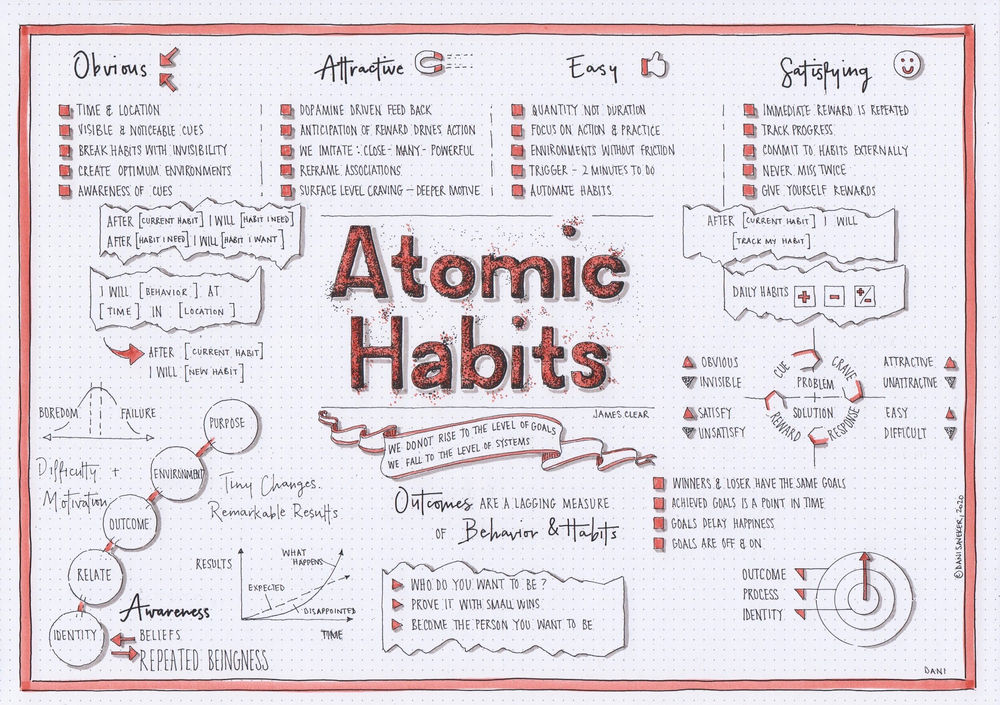 Obvious
TIME & LOCATION
VISIBLE & NOTICEABLE CUES
BREAK HABITS WITH INVISIBILITY
CREATE OPTIMUM ENVIRONMENTS
AWARENESS OF CUES
AFTER [CURRENT HABIT] I WILL [HABIT I NEED]
AFTER [HABIT I NEED] I WILL [HABIT I WANT]
I WILL [BEHAVIOR] AT
[TIME] IN [LOCATION]
AFTER [CURRENT HABIT]
I WILL [NEW HABIT]
Attractive
DOPAMINE DRIVEN FEED BACK
ANTICIPATION OF REWARD DRIVES ACTION
WE IMITATE : CLOSE - MANY - POWERFUL
REFRAME ASSOCIATIONS
SURFACE LEVEL CRAVING - DEEPER MOTIVE
Easy
QUANTITY NOT DURATION
FOCUS ON ACTION & PRACTICE
ENVIRONMENTS WITHOUT FRICTION
TRIGGER - 2 MINUTES TO DO
AUTOMATE HABITS
Satisfying
IMMEDIATE REWARD IS REPEATED
TRACK PROGRESS
COMMIT TO HABITS EXTERNALLY
NEVER MISS TWICE
GIVE YOURSELF REWARDS
AFTER [CURRENT HABIT] I WILL
[TRACK MY HABIT]
DAILY HABITS + - +/-
Atomic
Habits
JAMES CLEAR
WE DO NOT RISE TO THE LEVEL OF GOALS
WE FALL TO THE LEVEL OF SYSTEMS
Outcomes ARE A LAGGING MEASURE
OF Behavior & Habits
WHO DO YOU WANT TO BE ?
PROVE IT WITH SMALL WINS
BECOME THE PERSON YOU WANT TO BE
OBVIOUS
INVISIBLE
SATISFY
UNSATISFY
CUE
CRAVE
PROBLEM
SOLUTION
REWARD
RESPONSE
ATTRACTIVE
UNATTRACTIVE
EASY
DIFFICULT
WINNERS & LOSER HAVE THE SAME GOALS
ACHIEVED GOALS IS A POINT IN TIME
GOALS DELAY HAPPINESS
GOALS ARE OFF & ON
OUTCOME
PROCESS
IDENTITY
BOREDOM
FAILURE
Difficulty +
Motivation
PURPOSE
ENVIRONMENT
OUTCOME
RELATE
IDENTITY
Tiny Changes.
Remarkable Results
RESULTS
WHAT
HAPPENS
EXPECTED
DISAPPOINTED
TIME
Awareness
BELIEFS
REPEATED BEINGNESS
© DANI SAVEKER, 2020
DANI